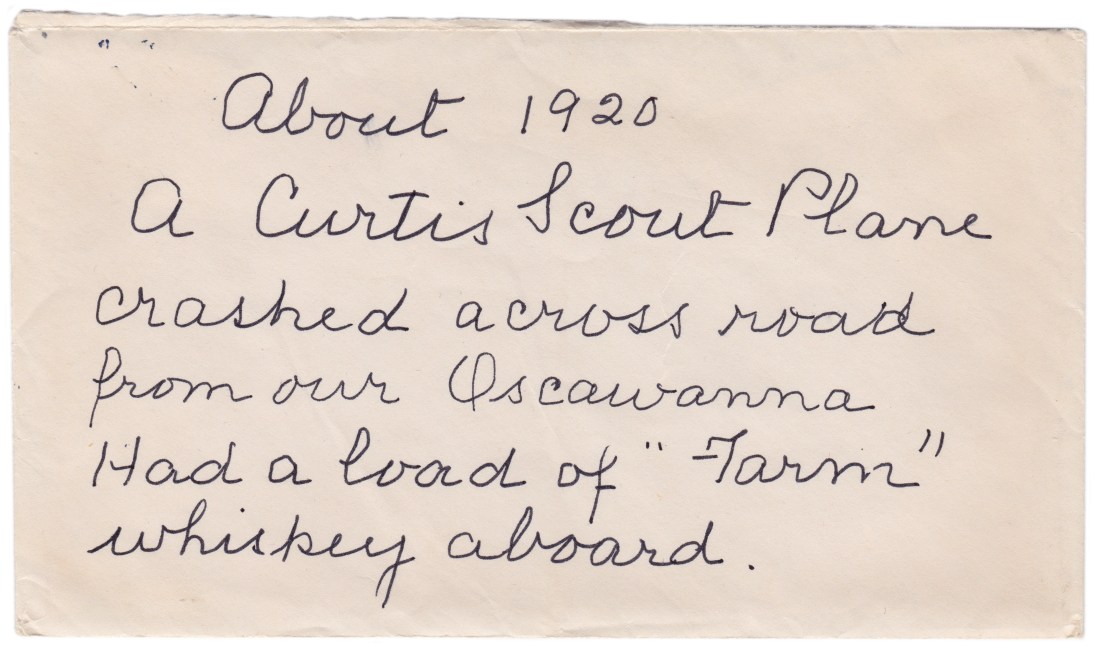 About 1920
A Curtis Scout Plane
crashed across road
from our Oscawanna
Had a load of "Farm"
whiskey aboard.